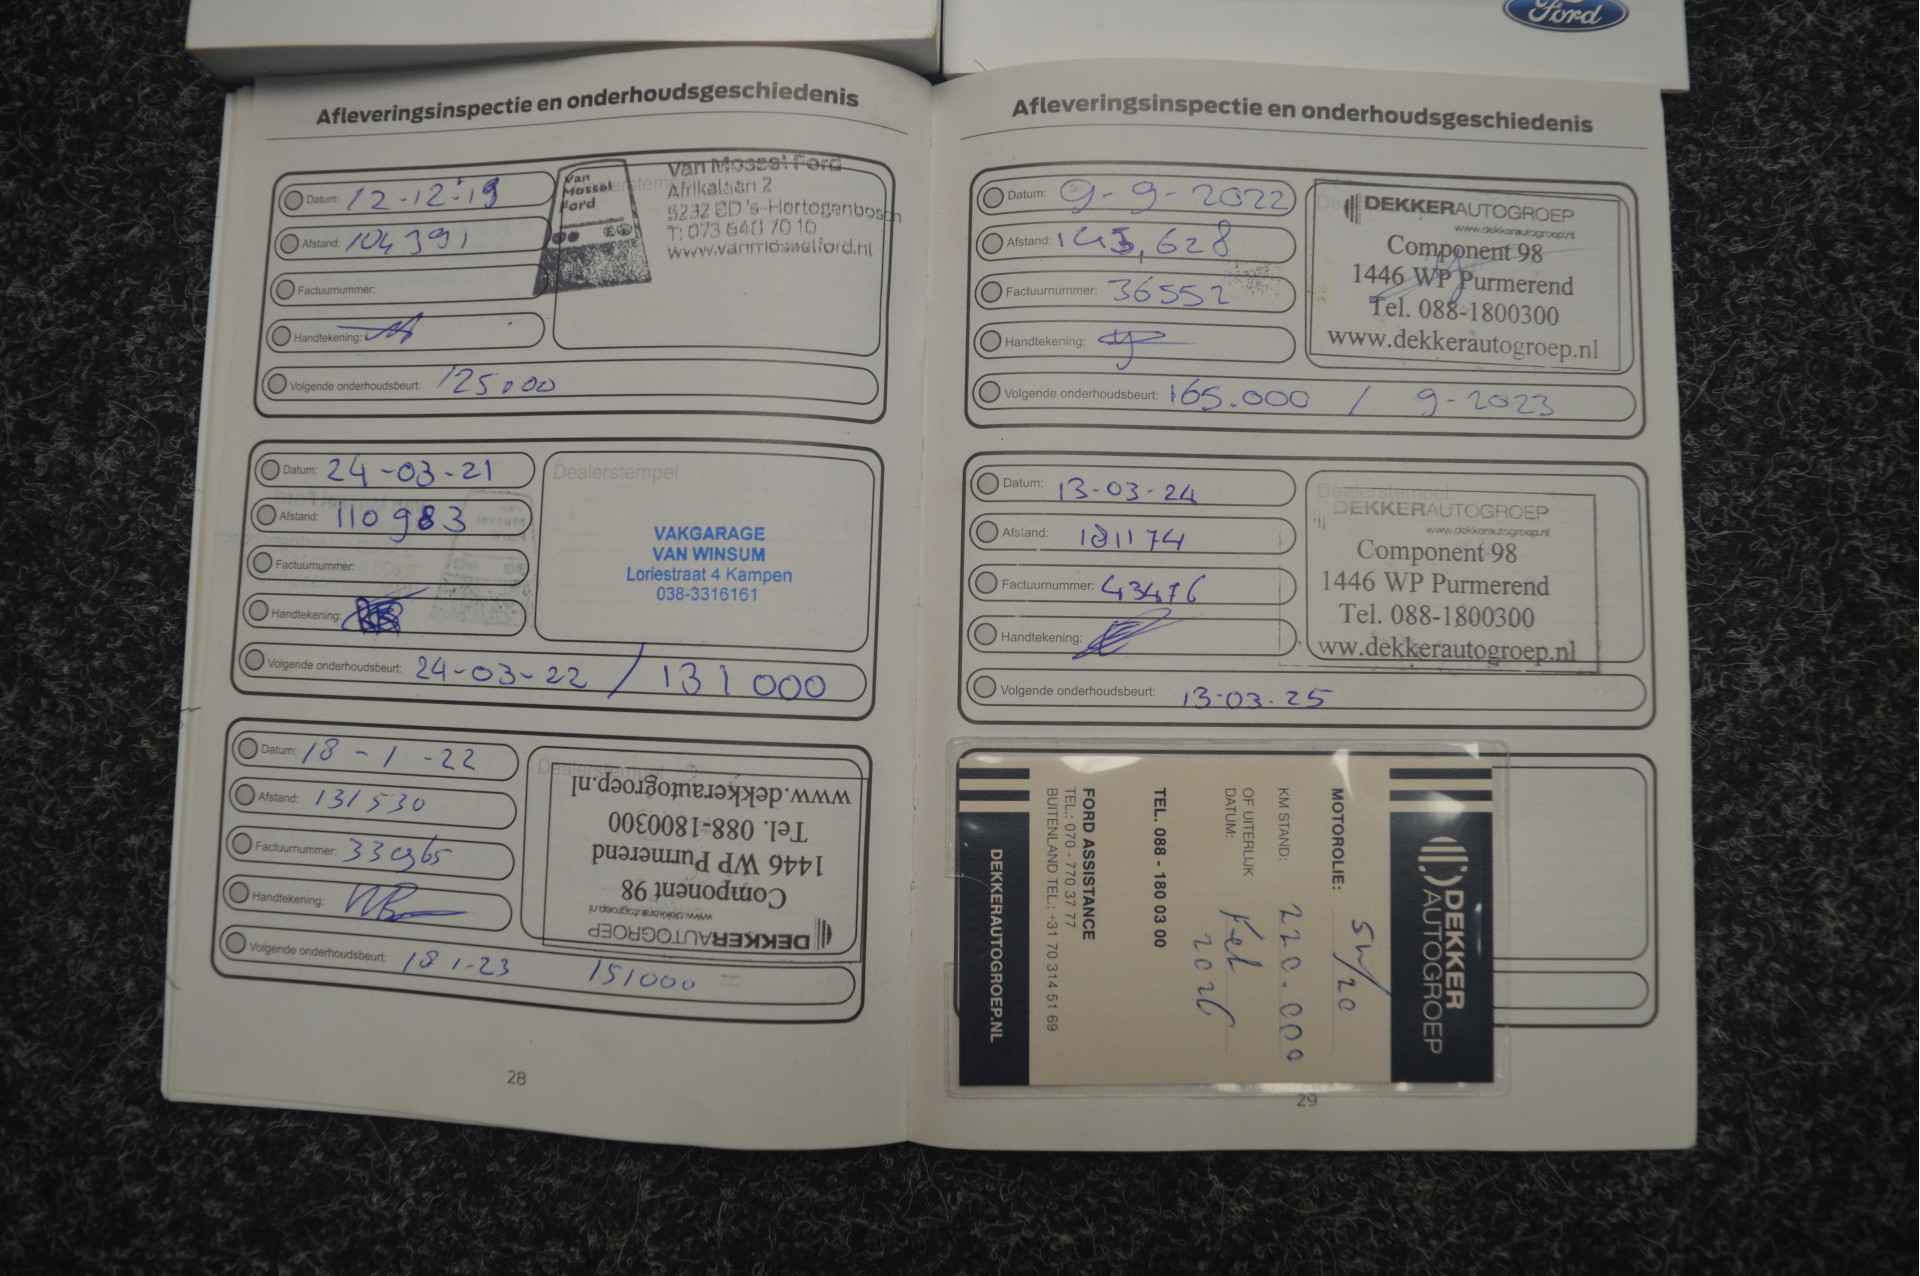 Ford
Afleveringsinspectie en onderhoudsgeschiedenis
Datum: 12-12-19
Afstand: 104391
Factuurnummer:
Handtekening:
Volgende onderhoudsbeurt: 125.000
Van
Mossel
Ford
Van Mossel Ford
Afrikalaan 2
5232 BD 's-Hertogenbosch
T: 073 640 70 10
www.vanmosselford.nl
Datum: 24-03-21
Afstand: 110983
Factuurnummer:
Handtekening:
Volgende onderhoudsbeurt: 24-03-22 / 131000
Dealerstempel
VAKGARAGE
VAN WINSUM
Loriestraat 4 Kampen
038-3316161
Datum: 18-1-22
Afstand: 131530
Factuurnummer: 33965
Handtekening:
Volgende onderhoudsbeurt: 18 1-23 151000
DEKKERAUTOGROEP
www.dekkerautogroep.nl
Component 98
1446 WP Purmerend
Tel. 088-1800300
www.dekkerautogroep.nl
28
Afleveringsinspectie en onderhoudsgeschiedenis
Datum: 9-9-2022
Afstand: 145,628
Factuurnummer: 36552
Handtekening:
Volgende onderhoudsbeurt: 165.000 / 9-2023
DEKKERAUTOGROEP
www.dekkerautogroep.nl
Component 98
1446 WP Purmerend
Tel. 088-1800300
www.dekkerautogroep.nl
Datum: 13-03-24
Afstand: 181174
Factuurnummer: 43476
Handtekening:
Volgende onderhoudsbeurt: 13-03-25
Dealerstempel
DEKKERAUTOGROEP
www.dekkerautogroep.nl
Component 98
1446 WP Purmerend
Tel. 088-1800300
ww.dekkerautogroep.nl
DEKKER
AUTOGROEP
MOTOROLIE: 5W/20
KM STAND: 220.000
OF UITERLIJK
DATUM: Feb 2026
TEL. 088 - 180 03 00
FORD ASSISTANCE
TEL.: 070 - 770 37 77
BUITENLAND TEL.: +31 70 314 51 69
DEKKERAUTOGROEP.NL
29